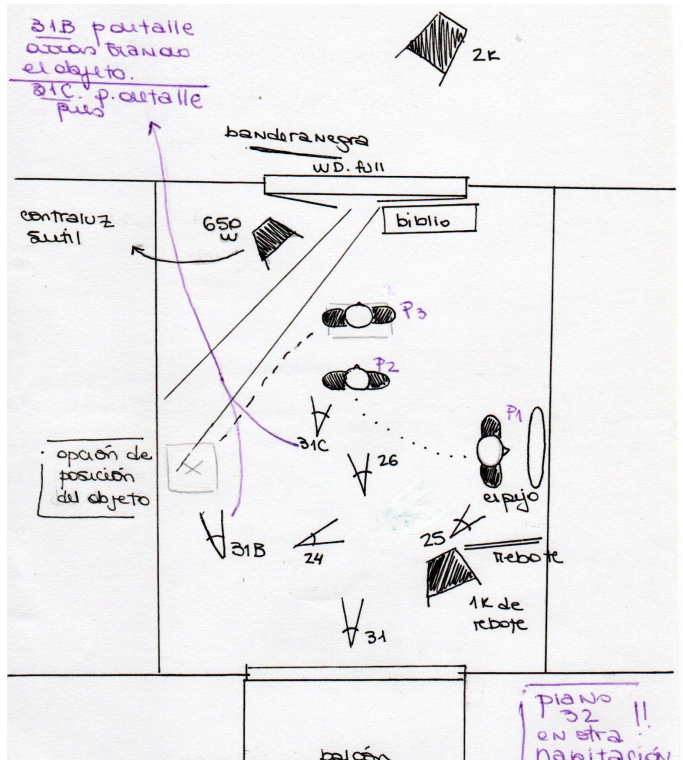 31B p detalle
arrastrando
el objeto.
31C. p. detalle
pies
2K
bandera negra
WD. full
contraluz
sutil
650
W
biblio
P3
P2
P1
31C
26
opción de
posición
del objeto
espejo
31B
24
25
rebote
1K de
rebote
31
plano
32 !!
en otra
habitación
balcón